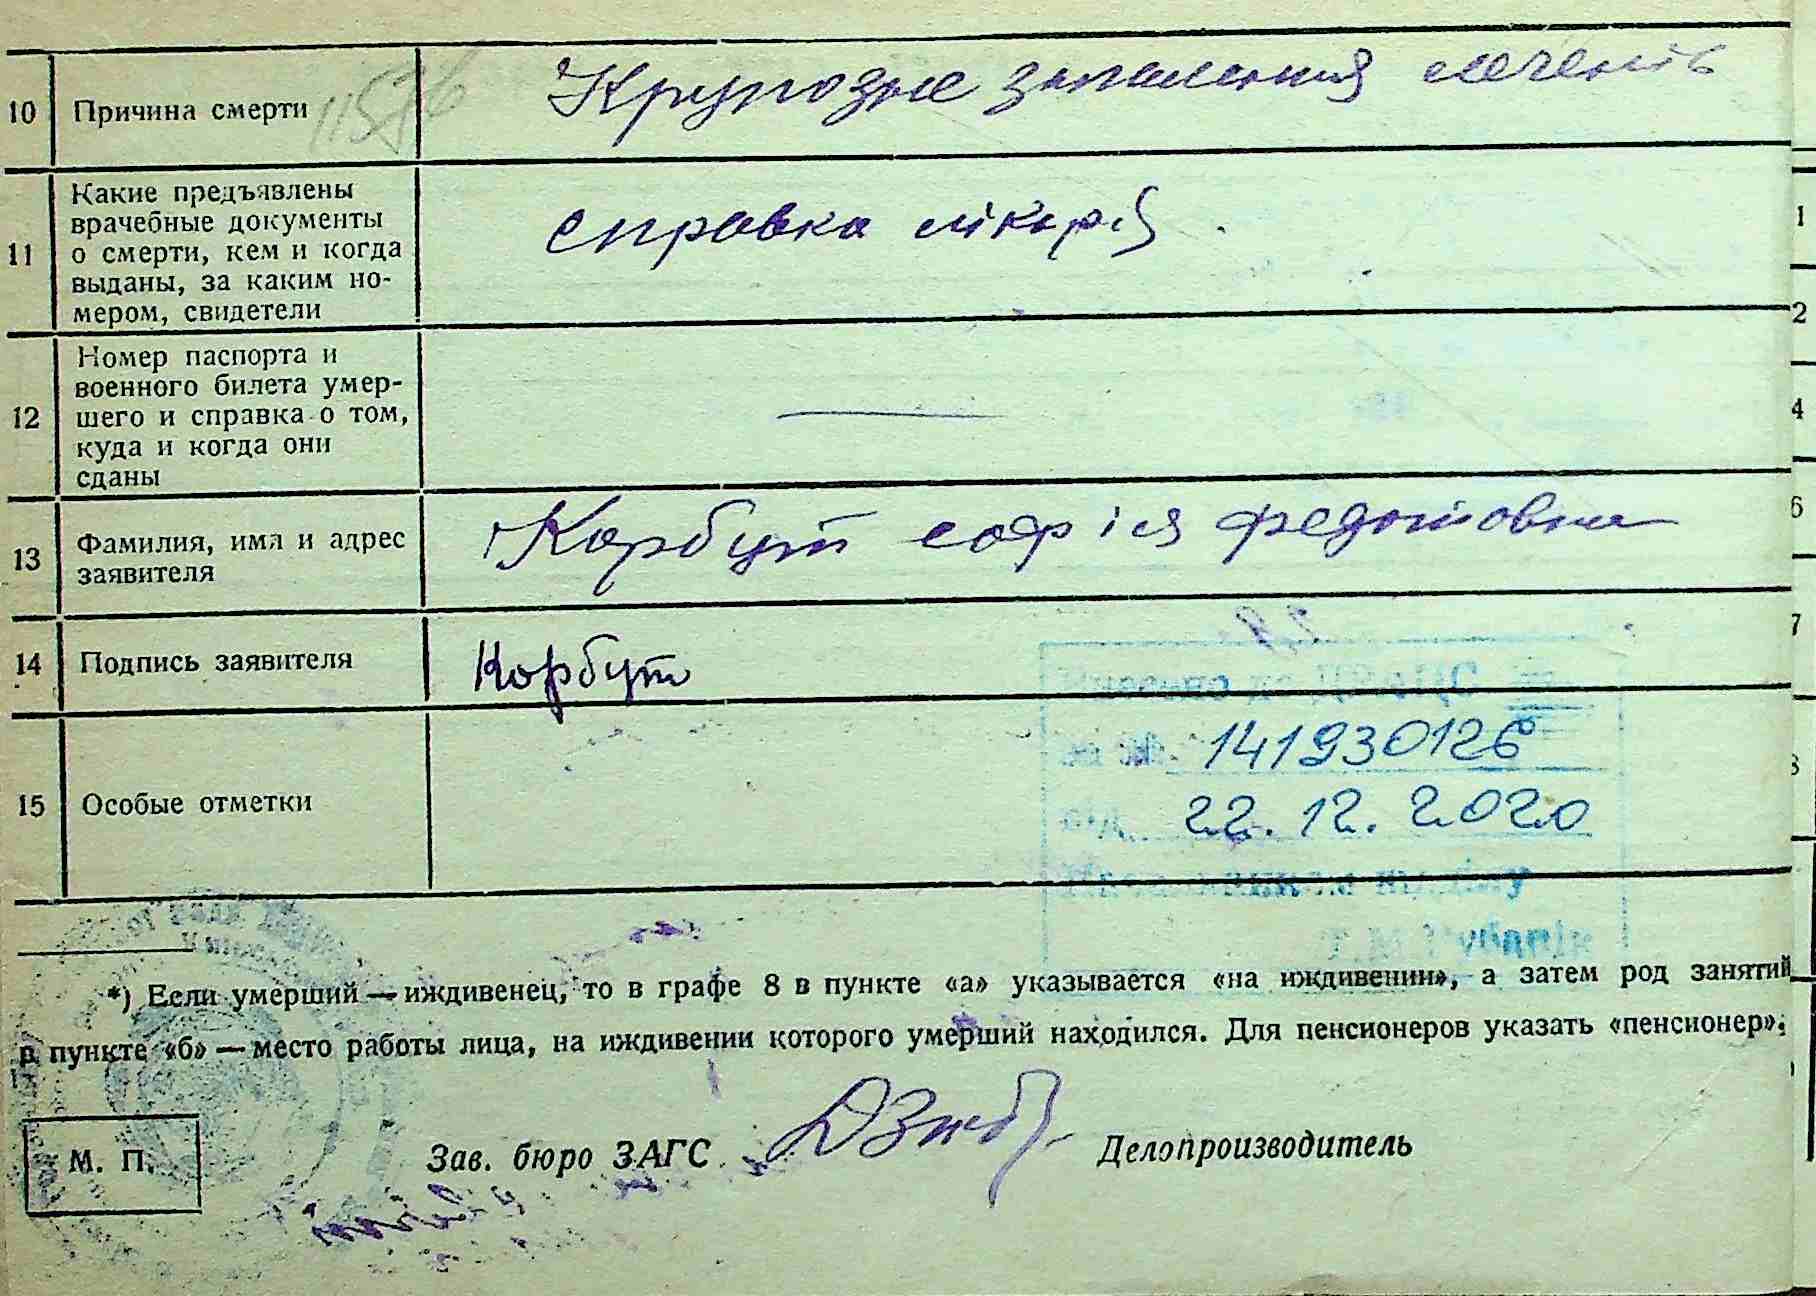 10 Причина смерти Крупозне запалення легень
11 Какие предъявлены
врачебные документы
о смерти, кем и когда
выданы, за каким но-
мером, свидетели
справка лікаря
12 Номер паспорта и
военного билета умер-
шего и справка о том,
куда и когда они
сданы
13 Фамилия, имя и адрес
заявителя
Корбут софія федотовна
14 Подпись заявителя Корбут
15 Особые отметки
141930126
22.12.2020
*) Если умерший — иждивенец, то в графе 8 в пункте «а» указывается «на иждивении», а затем род занятий
в пункте «б» — место работы лица, на иждивении которого умерший находился. Для пенсионеров указать «пенсионер».
М. П. Зав. бюро ЗАГС Делопроизводитель